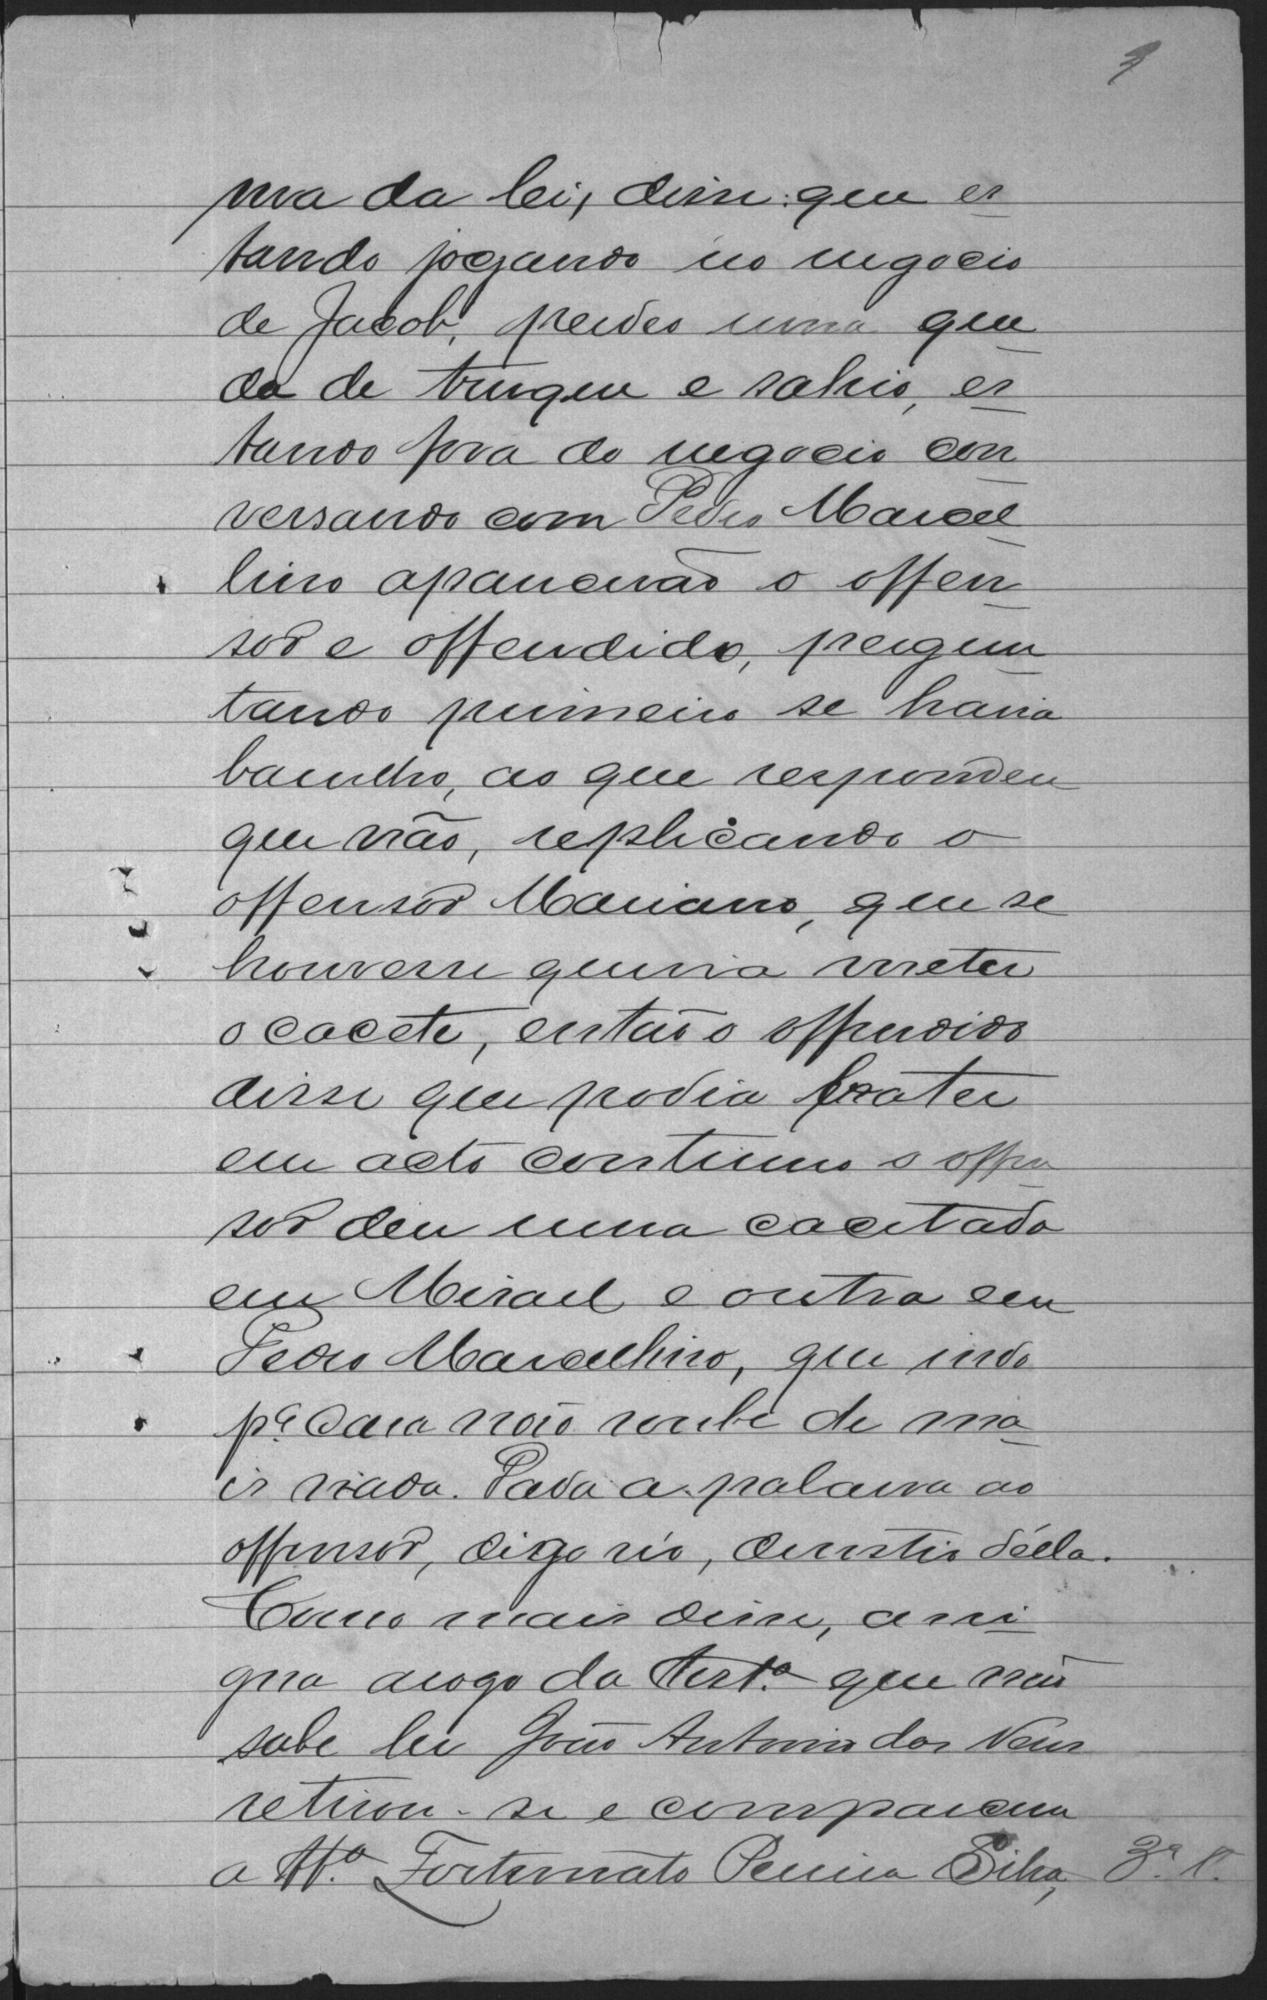 ma da lei, disse: que es
tando jogando no negocio
de Jacob, perdeo uma que
da de truque e sahio, es
tando fora do negocio con
versando com Pedro Marcel
lino aparecerão o offen
sor e offendido, pergun
tando primeiro se havia
barulho, ao que respondeu
que não, replicando o
offensor Mariano, que se
houvesse queria meter
o cacete, então o offendido
disse que podia bater
em acto continuo o offen
sor deu uma cacetada
em Misael e outra em
Pedro Marcellino, que indo
pª casa não soube de ma
is nada. Dada a palavra ao
offensor, digo réo, desistio d'ella.
Como mais disse, assi
gna arogo da testª que não
sabe ler João Antonio das Neves
retirou-se e compareceu
a Ttª Fortunato Pereira Silva, 3ª T.